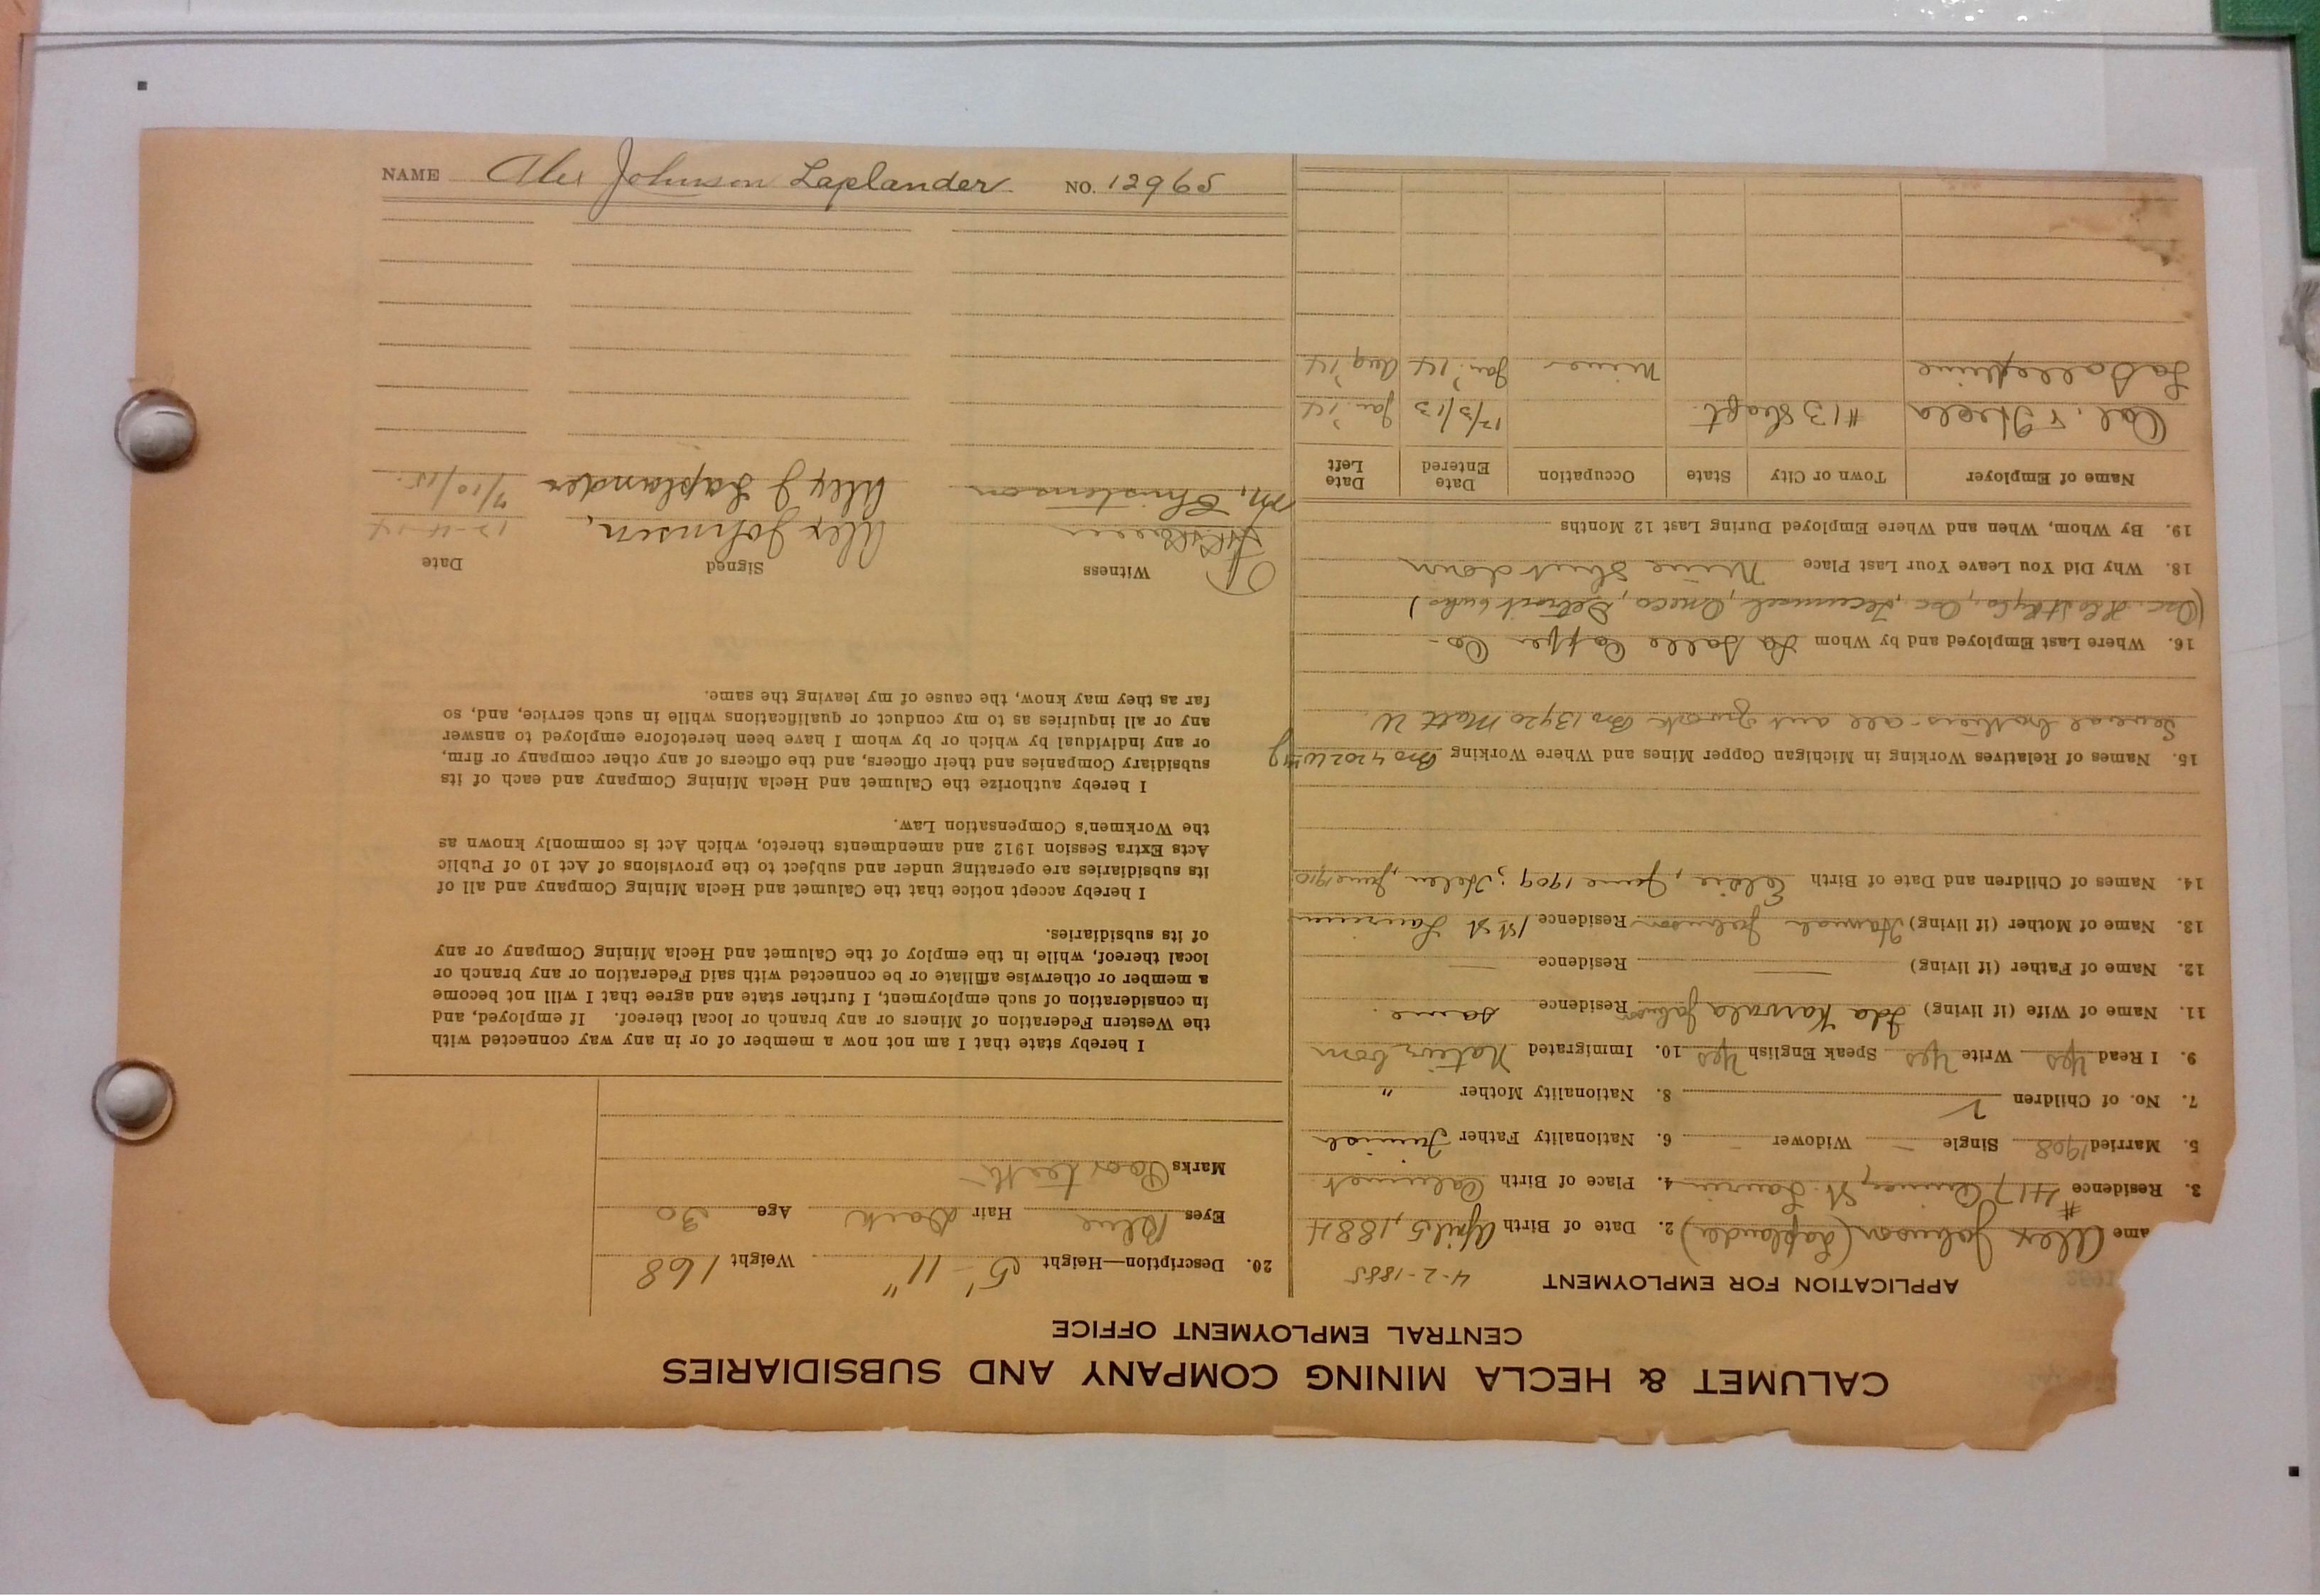 CALUMET & HECLA MINING COMPANY AND SUBSIDIARIES
CENTRAL EMPLOYMENT OFFICE
APPLICATION FOR EMPLOYMENT 4-2-1885
ame Alex Johnson (Laplander) 2. Date of Birth April 5, 1884
3. Residence #417 St. 4. Place of Birth Calumet
5. Married 1908 Single – Widower – 6. Nationality Father Finnish
7. No. of Children 2 8. Nationality Mother "
9. I Read Yes Write Yes Speak English Yes 10. Immigrated Native born
11. Name of Wife (if living) Ida Johnson Residence same.
12. Name of Father (if living) — Residence —
13. Name of Mother (if living) Hannah Johnson Residence 1st St Laurium
14. Names of Children and Date of Birth Elsie, June 1909; Helen, June 1910
15. Names of Relatives Working in Michigan Copper Mines and Where Working Bro 4202
Several brothers - all out of work Bro 13420 Matt
16. Where Last Employed and by Whom La Salle Copper Co-
(Osc. Tecumseh, Detroit
18. Why Did You Leave Your Last Place Mine Shut down
19. By Whom, When and Where Employed During Last 12 Months
Name of Employer Town or City State Occupation Date Entered Date Left
Cal. & Hecla #13 Shaft. 12/3/13 Jan. '14
La Salle Mine miner Jan. '14 Aug '14
20. Description—Height 5' - 11" Weight 168
Eyes Blue Hair Dark Age 30
Marks Poor teeth
I hereby state that I am not now a member of or in any way connected with
the Western Federation of Miners or any branch or local thereof. If employed, and
in consideration of such employment, I further state and agree that I will not become
a member or otherwise affiliate or be connected with said Federation or any branch or
local thereof, while in the employ of the Calumet and Hecla Mining Company or any
of its subsidiaries.
I hereby accept notice that the Calumet and Hecla Mining Company and all of
its subsidiaries are operating under and subject to the provisions of Act 10 of Public
Acts Extra Session 1912 and amendments thereto, which Act is commonly known as
the Workmen's Compensation Law.
I hereby authorize the Calumet and Hecla Mining Company and each of its
subsidiary Companies and their officers, and the officers of any other company or firm,
or any individual by which or by whom I have been heretofore employed to answer
any or all inquiries as to my conduct or qualifications while in such service, and, so
far as they may know, the cause of my leaving the same.
Witness Signed Date
Alex Johnson, 12-4-14
M. Christenson Alex J Laplander 7/10/15.
NAME Alex Johnson Laplander NO. 12965